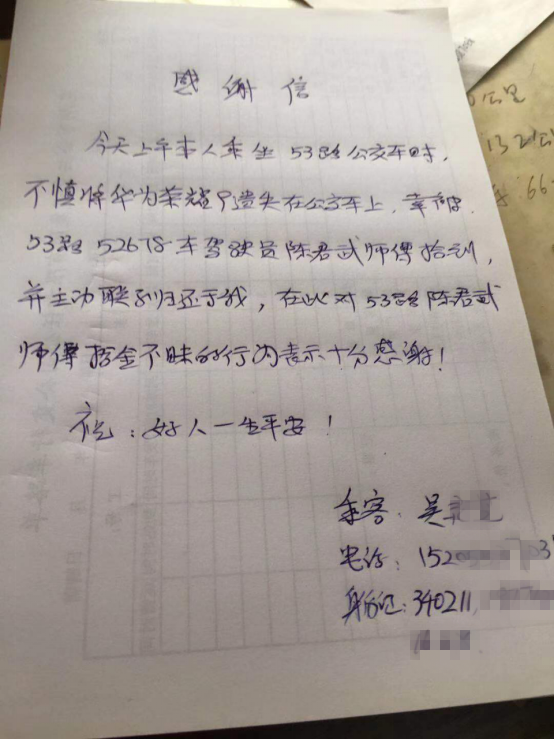 感谢信
今天上午本人乘坐53路公交车时,
不慎将华为荣耀9遗失在公交车上,幸被
53路52678车驾驶员陈君武师傅拾到,
并主动联系归还于我,在此对53路陈君武
师傅拾金不昧的行为表示十分感谢!
祝:好人一生平安!
乘客:吴
电话:152
身份证:340211
公里